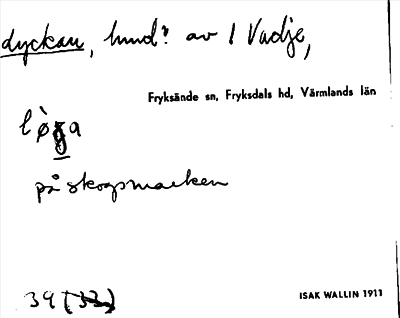 dyckan, hund? av I Vadje,
Fryksände sn, Fryksdals hd, Värmlands län
på skogsmarken
39 (33)
ISAK WALLIN 1911